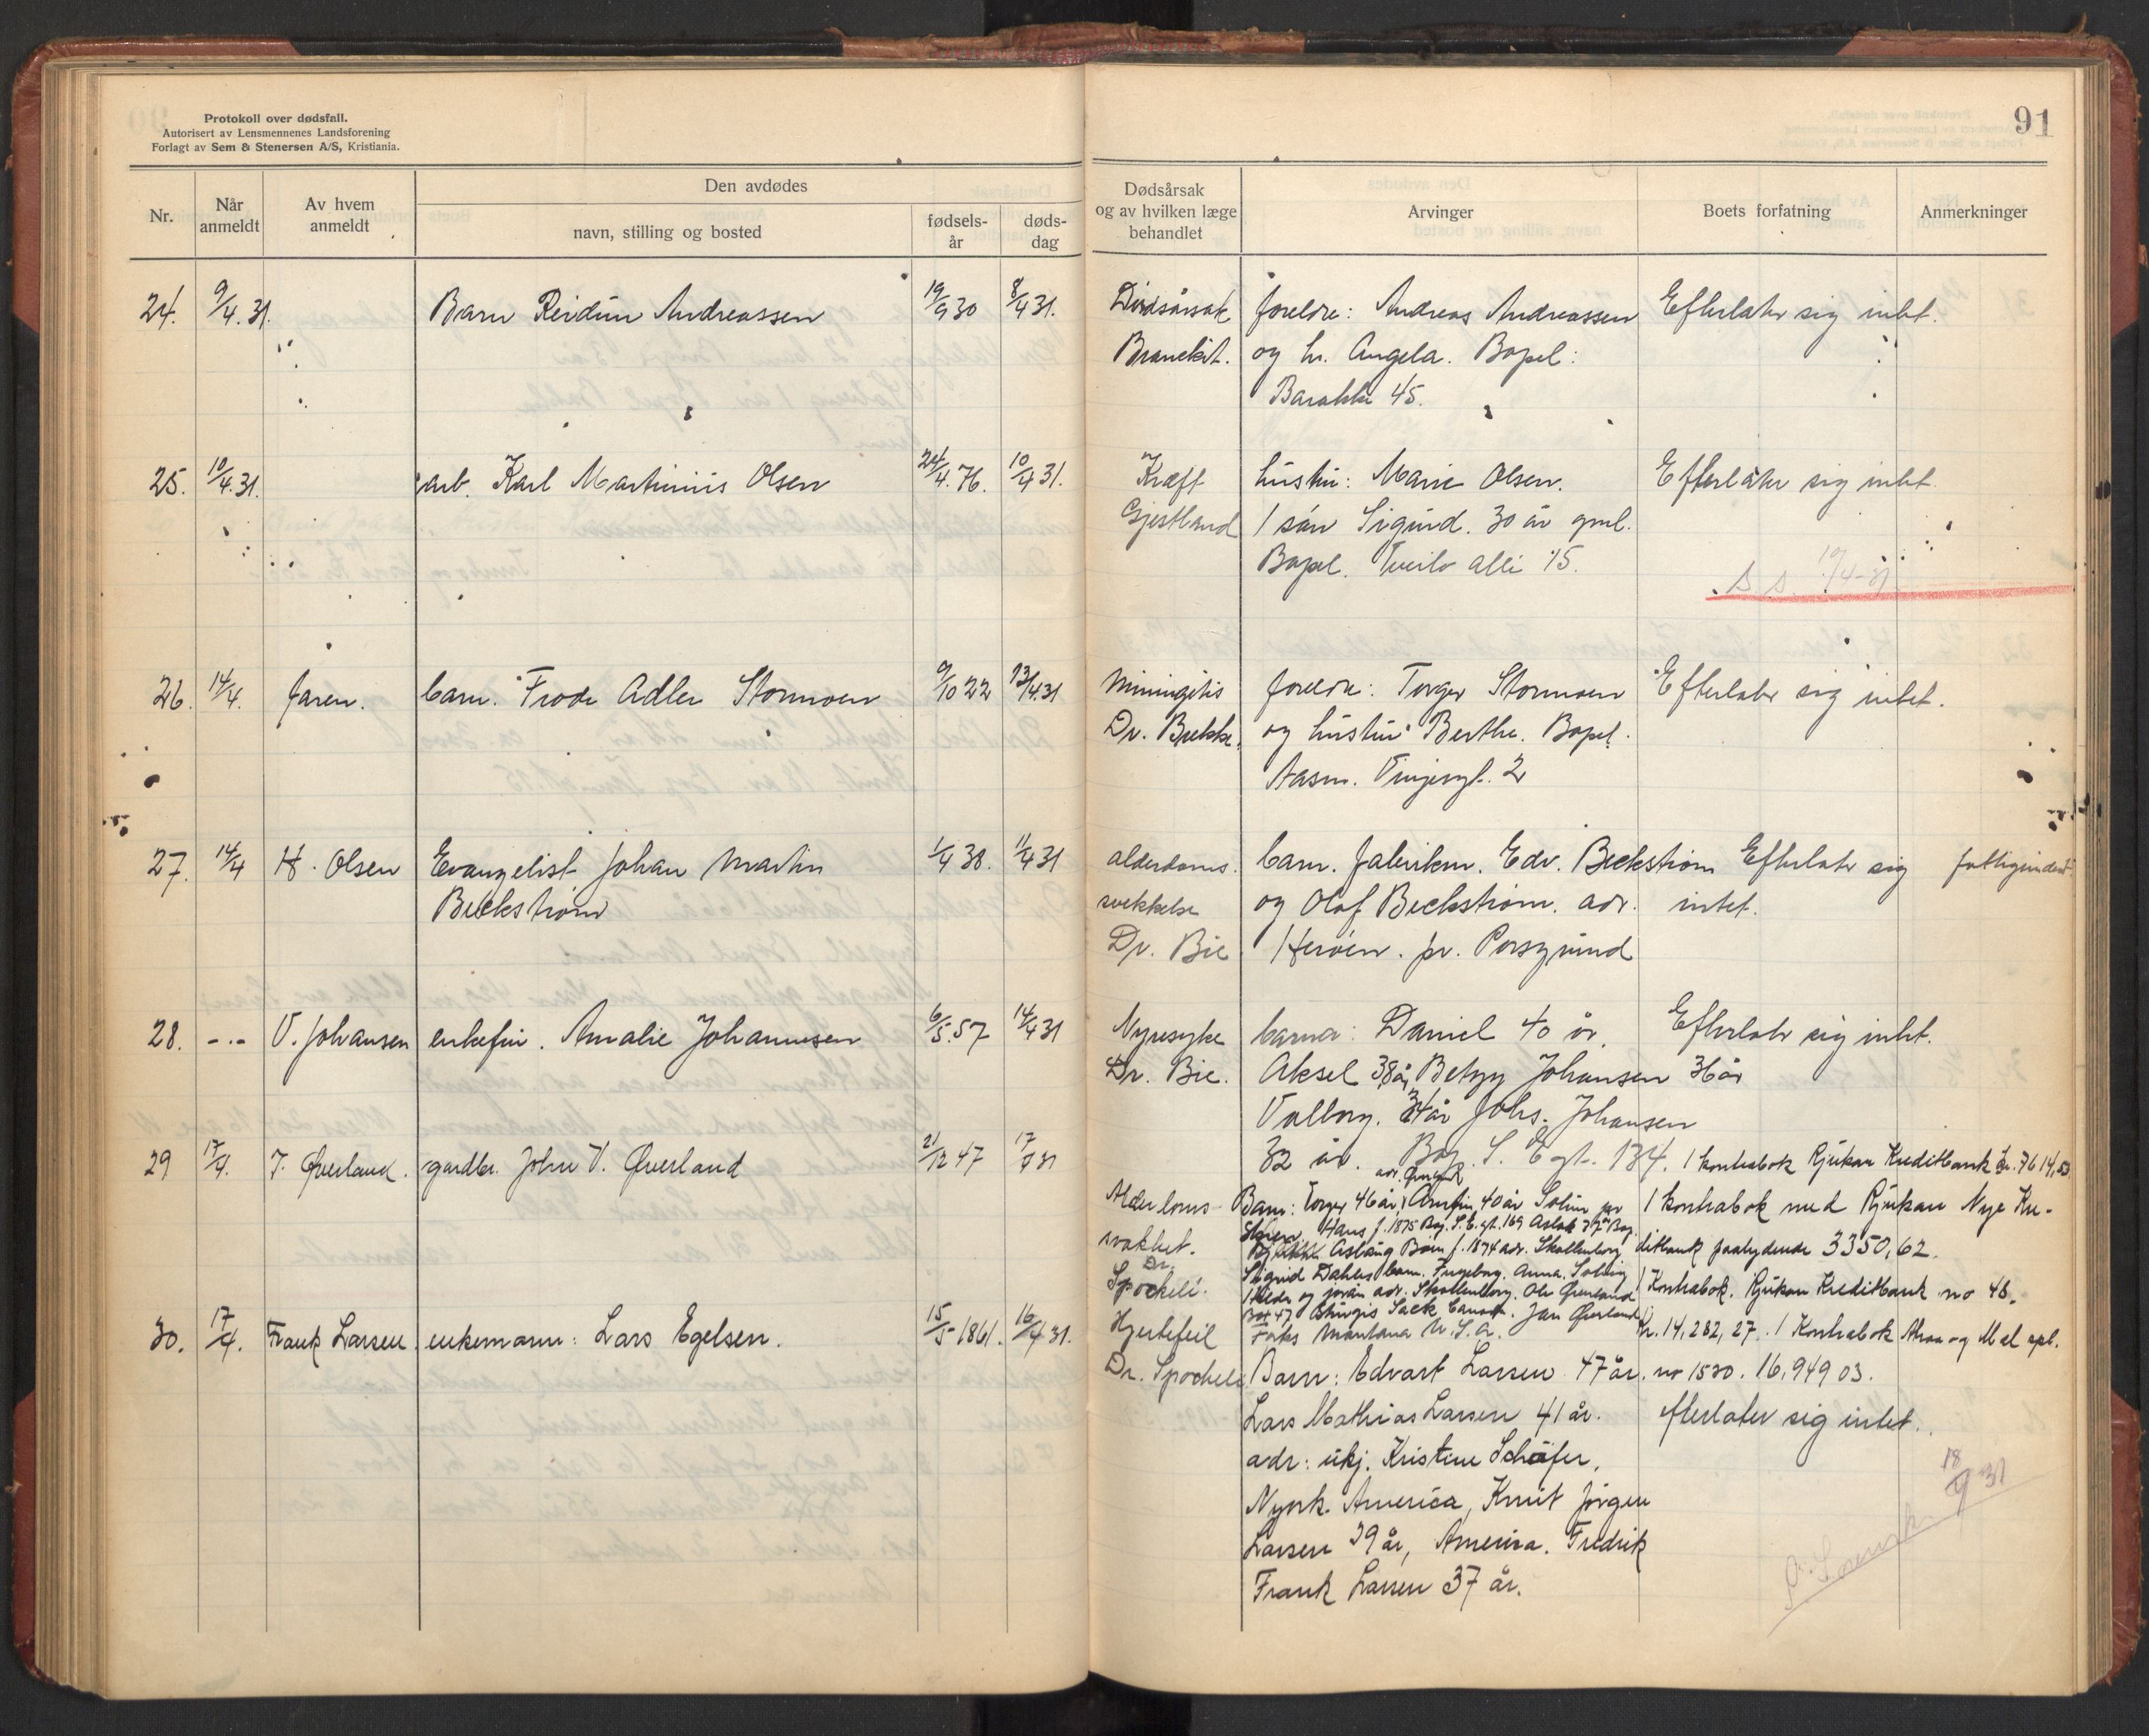 Protokoll over dødsfall.
Autorisert av Lensmennenes Landsforening
Forlagt av Sem & Stenersen A/S, Kristiania.
91
Nr.
Når anmeldt
Av hvem anmeldt
Den avdødes
navn, stilling og bosted
fødsels-år
døds-dag
Dødsårsak og av hvilken læge behandlet
Arvinger
Boets forfatning
Anmerkninger
24. 9/4.31. Barn Reidun Andreassen 19/9 30 8/4 31. Dødsårsak foreldre: Andreas Andreassen Efterlater sig intet.
og h. Angela. Bopel:
Barakke 45.
25. 10/4.31. arb. Karl Martinius Olsen 24/4.76. 10/4 31. Kræft hustru: Marie Olsen. Efterlater sig intet.
Gjestland 1 søn Sigurd. 30 år gml.
Bopel. Tveito alle 15.
10/4-31
26. 14/4. Jaren. barn. Frode Adler Stormoen 9/10 22 13/4 31 Miningitis foreldre: Torger Stormoen Efterlater sig intet.
Dr. Brekke. og hustru Berthe. Bopel.
Aasm. Vinjesgt. 2
27. 14/4 H. Olsen Evangelist Johan Martin 1/4 38. 11/4 31 alderdoms- barn. fabrikm. Edv. Beckstrøm Efterlater sig
Beckstrøm svekkelse og Olaf Beckstrøm. adr. intet.
Dr. Bie Herøen. pr. Porsgrund
28. -"- V. Johansen enkefru. Amalie Johannesen 6/5.57 14/4 31 Nyresyke barna: Daniel 40 år. Efterlater sig intet.
Dr. Bie. Aksel 38 år, Betzy Johansen 36 år
Valborg. 34 år Johs. Johansen
32 år. Bop. S. E gt. 134.
29 17/4. T. Øverland. gardbr. John V. Øverland 21/12 47 17/4 31 1 kontrabok Rjukan Kreditbank kr. 7614,53
Alderdoms- Barn: Torger 46 år, 40 år 1 kontrabok med Rjukan Nye Kre-
svakhet. Hans f. 1875 Bop. S. E. gt. 169 Aslak
Aslaug Bøen f. 1874 adr. Skollenborg ditbank paalydende 3350,62.
Dr. Spockeli. Sigrid Dahles barn. Ingeborg. Anna. Solveig
adr. Skollenborg. Ole Øverland 1 Kontrabok. Rjukan Kreditbank no 48.
Box 47 Jan Øverland
Montana U.S.A. kr. 14,282,27. 1 Kontrabok Atraa og Mæl spb.
30. 17/4. Frank Larsen enkemann: Lars Egelsen. 15/5-1861. 16/4 31. Hjertefeil
Dr. Spockeli Barn: Edvart Larsen 47 år. no 1530. 16,949 03.
Lars Mathias Larsen 41 år. efterlater sig intet.
adr: ukj. Kristine Schäfer,
Nyork. America, Knut Jørgen
Larsen 39 år, America. Fredrik
Frank Larsen 37 år.
18/4 31